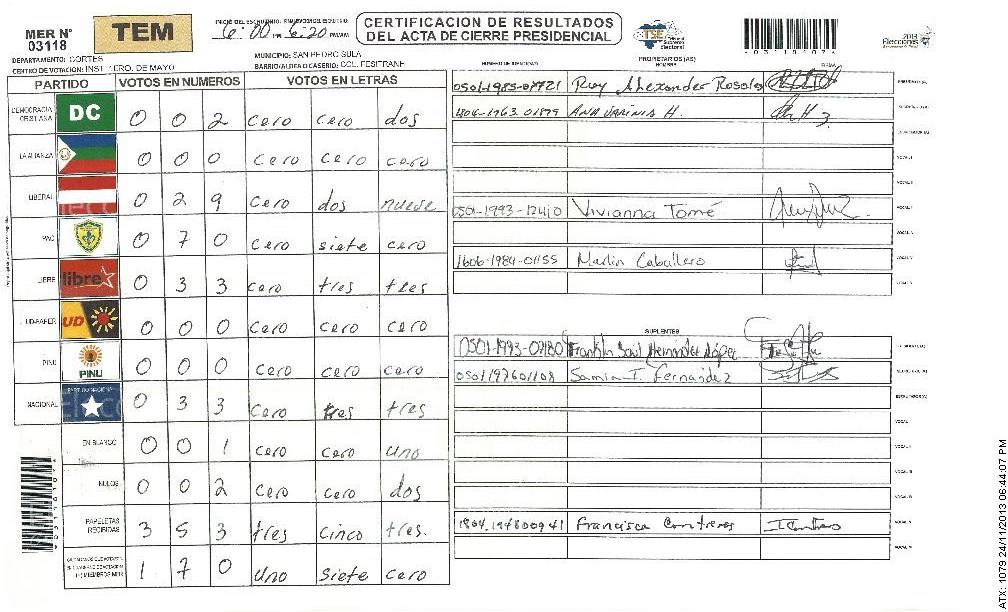 MER Nº
03118
TEM
INICIO DEL ESCRUTINIO: FINALIZACION DEL ESCRUTINIO:
6:00 PM 6:20 PM/AM
CERTIFICACION DE RESULTADOS
DEL ACTA DE CIERRE PRESIDENCIAL
TSE Tribunal Supremo Electoral
2013
Elecciones
DEPARTAMENTO: CORTES
MUNICIPIO: SAN PEDRO SULA
CENTRO DE VOTACION: INST 1ERO. DE MAYO
BARRIO/ALDEA O CASERIO: COL. FESITRANH
PARTIDO VOTOS EN NUMEROS VOTOS EN LETRAS
DEMOCRACIA CRISTIANA DC 0 0 2 cero cero dos
LA ALIANZA 0 0 0 cero cero cero
LIBERAL 0 29 cero dos nueve
PAC 0 7 0 cero siete cero
LIBRE libre 0 3 3 cero tres tres
UD-FAPER UD 0 0 0 cero cero cero
PINU PINU 0 0 0 cero cero cero
NACIONAL 0 3 3 cero tres tres
EN BLANCO 0 0 1 cero cero uno
NULOS 0 0 2 cero cero dos
PAPELETAS RECIBIDAS 3 5 3 tres cinco tres.
(+) MIEMBROS MER 1 7 0 uno siete cero
NUMERO DE IDENTIDAD PROPIETARIOS (AS) NOMBRE FIRMA
Roy Alexander Rosales PRESIDENTE (A)
ANA VARINIA H. SECRETARIO (A)
ESCRUTADOR (A)
VOCAL I
VOCAL II
0501-1993-12410 Vivianna Tomé
1606-1984-01155 Marlin Caballero
SUPLENTES
0501-1993-07180 Franklin Saul Hernandez López
0501197601108 Samia T. Fernandez SECRETARIO (A)
ESCRUTADOR (A)
1804.197800941 Francisca Contreras
ATX: 1079 24/11/2013 06:44:07 PM